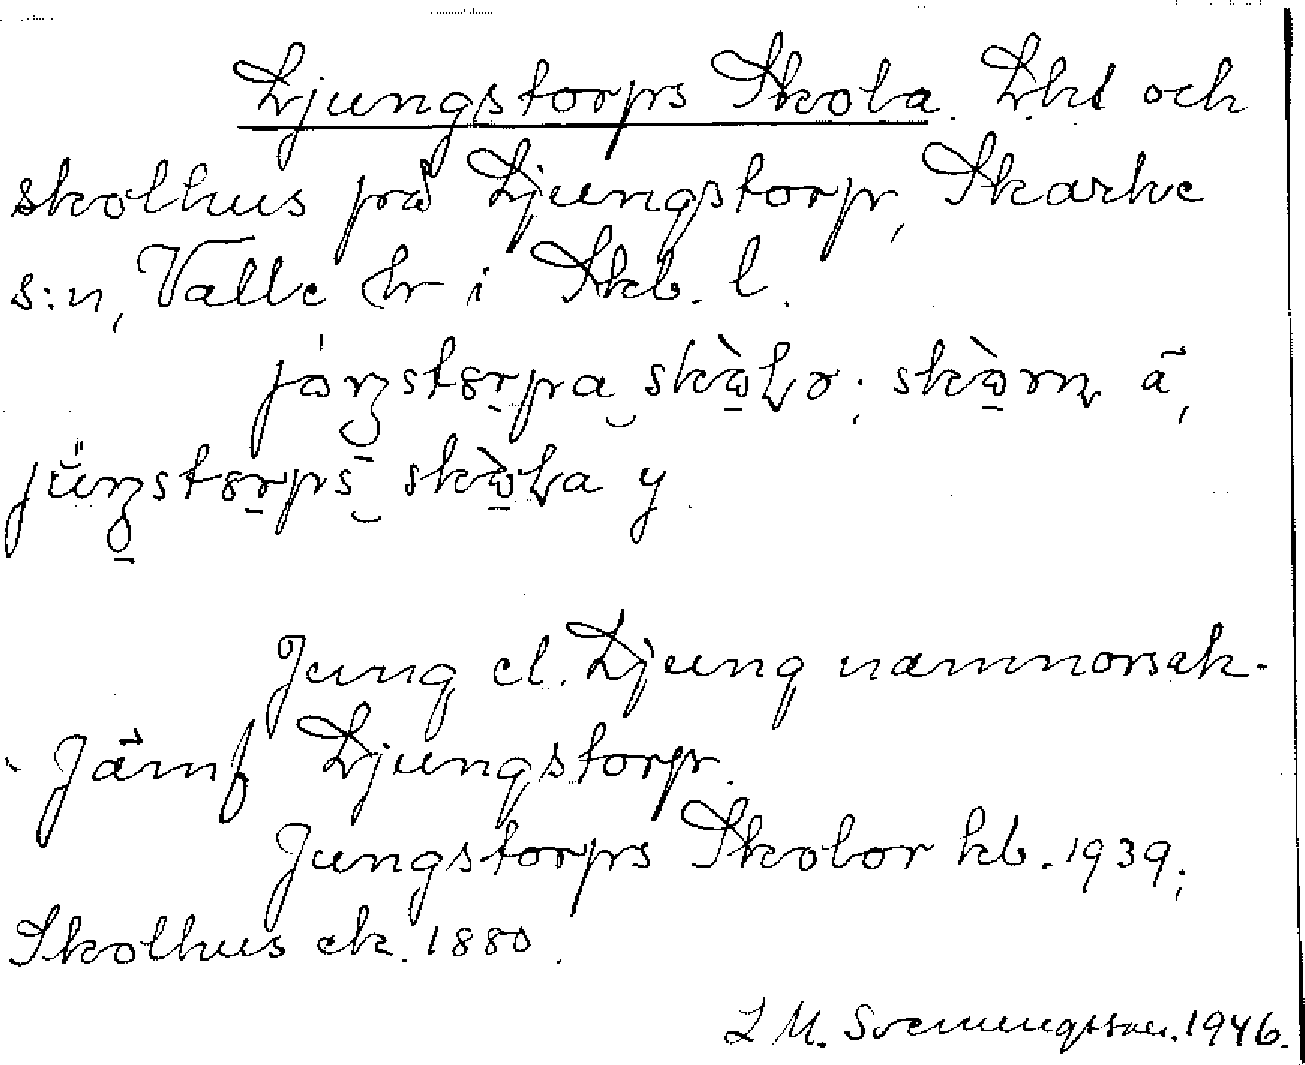 Ljungstorps Skola. Lht och
skolhus på Ljungstorp, Skarke
s:n, Valle hr i Skb. l.
skola y
Jung el. Ljung namnorsak.
Jämf Ljungstorp.
Jungstorps Skolor kb. 1939;
Skolhus ek. 1880.
L M. Svenungsson. 1946.